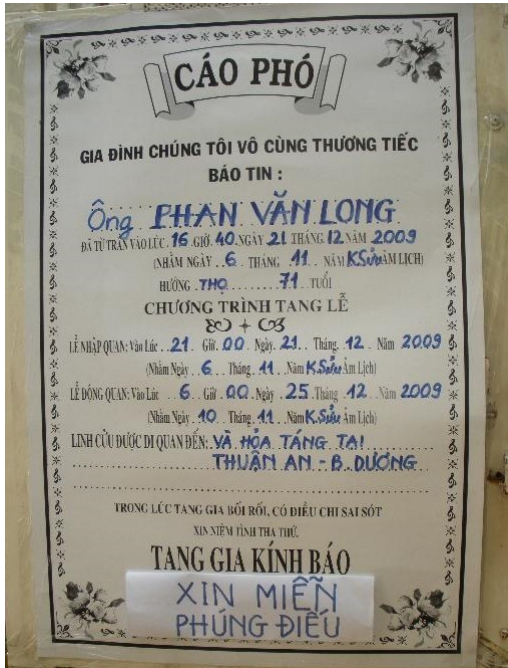 CÁO PHÓ
GIA ĐÌNH CHÚNG TÔI VÔ CÙNG THƯƠNG TIẾC
BÁO TIN :
Ông PHAN VĂN LONG
ĐÃ TỪ TRẦN VÀO LÚC .16. GIỜ .40. NGÀY 21 THÁNG .12. NĂM 2009
(NHẰM NGÀY ..6.. THÁNG .11.. NĂM K.Sửu ÂM LỊCH)
HƯỞNG .THỌ........71...TUỔI
CHƯƠNG TRÌNH TANG LỄ
LỄ NHẬP QUAN: Vào Lúc ..21. Giờ .00. Ngày .21.. Tháng. 12.. Năm 2009
(Nhằm Ngày ..6... Tháng .11.. Năm K.Sửu Âm Lịch)
LỄ ĐỘNG QUAN: Vào Lúc ..6.. Giờ 00. Ngày .25. Tháng .12.. Năm 2009
(Nhằm Ngày .10... Tháng .11.. Năm K.Sửu Âm Lịch)
LINH CỬU ĐƯỢC DI QUAN ĐẾN: VÀ HỎA TÁNG TẠI
THUẬN AN - B. DƯƠNG
TRONG LÚC TANG GIA BỐI RỐI, CÓ ĐIỀU CHI SAI SÓT
XIN NIỆM TÌNH THA THỨ.
TANG GIA KÍNH BÁO
XIN MIỄN
PHÚNG ĐIẾU